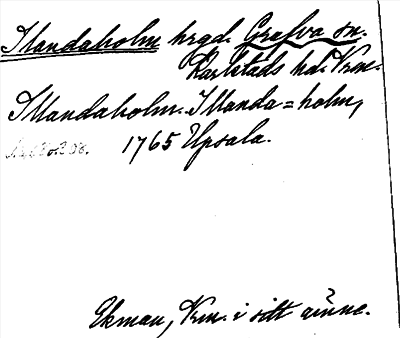 Illandaholm hrgd. Grafva sn.
Karlstads hd. Vrm.
Illandaholm. Illanda=holm,
1765 Upsala.
Ekman, Vrm. i sitt ämne.